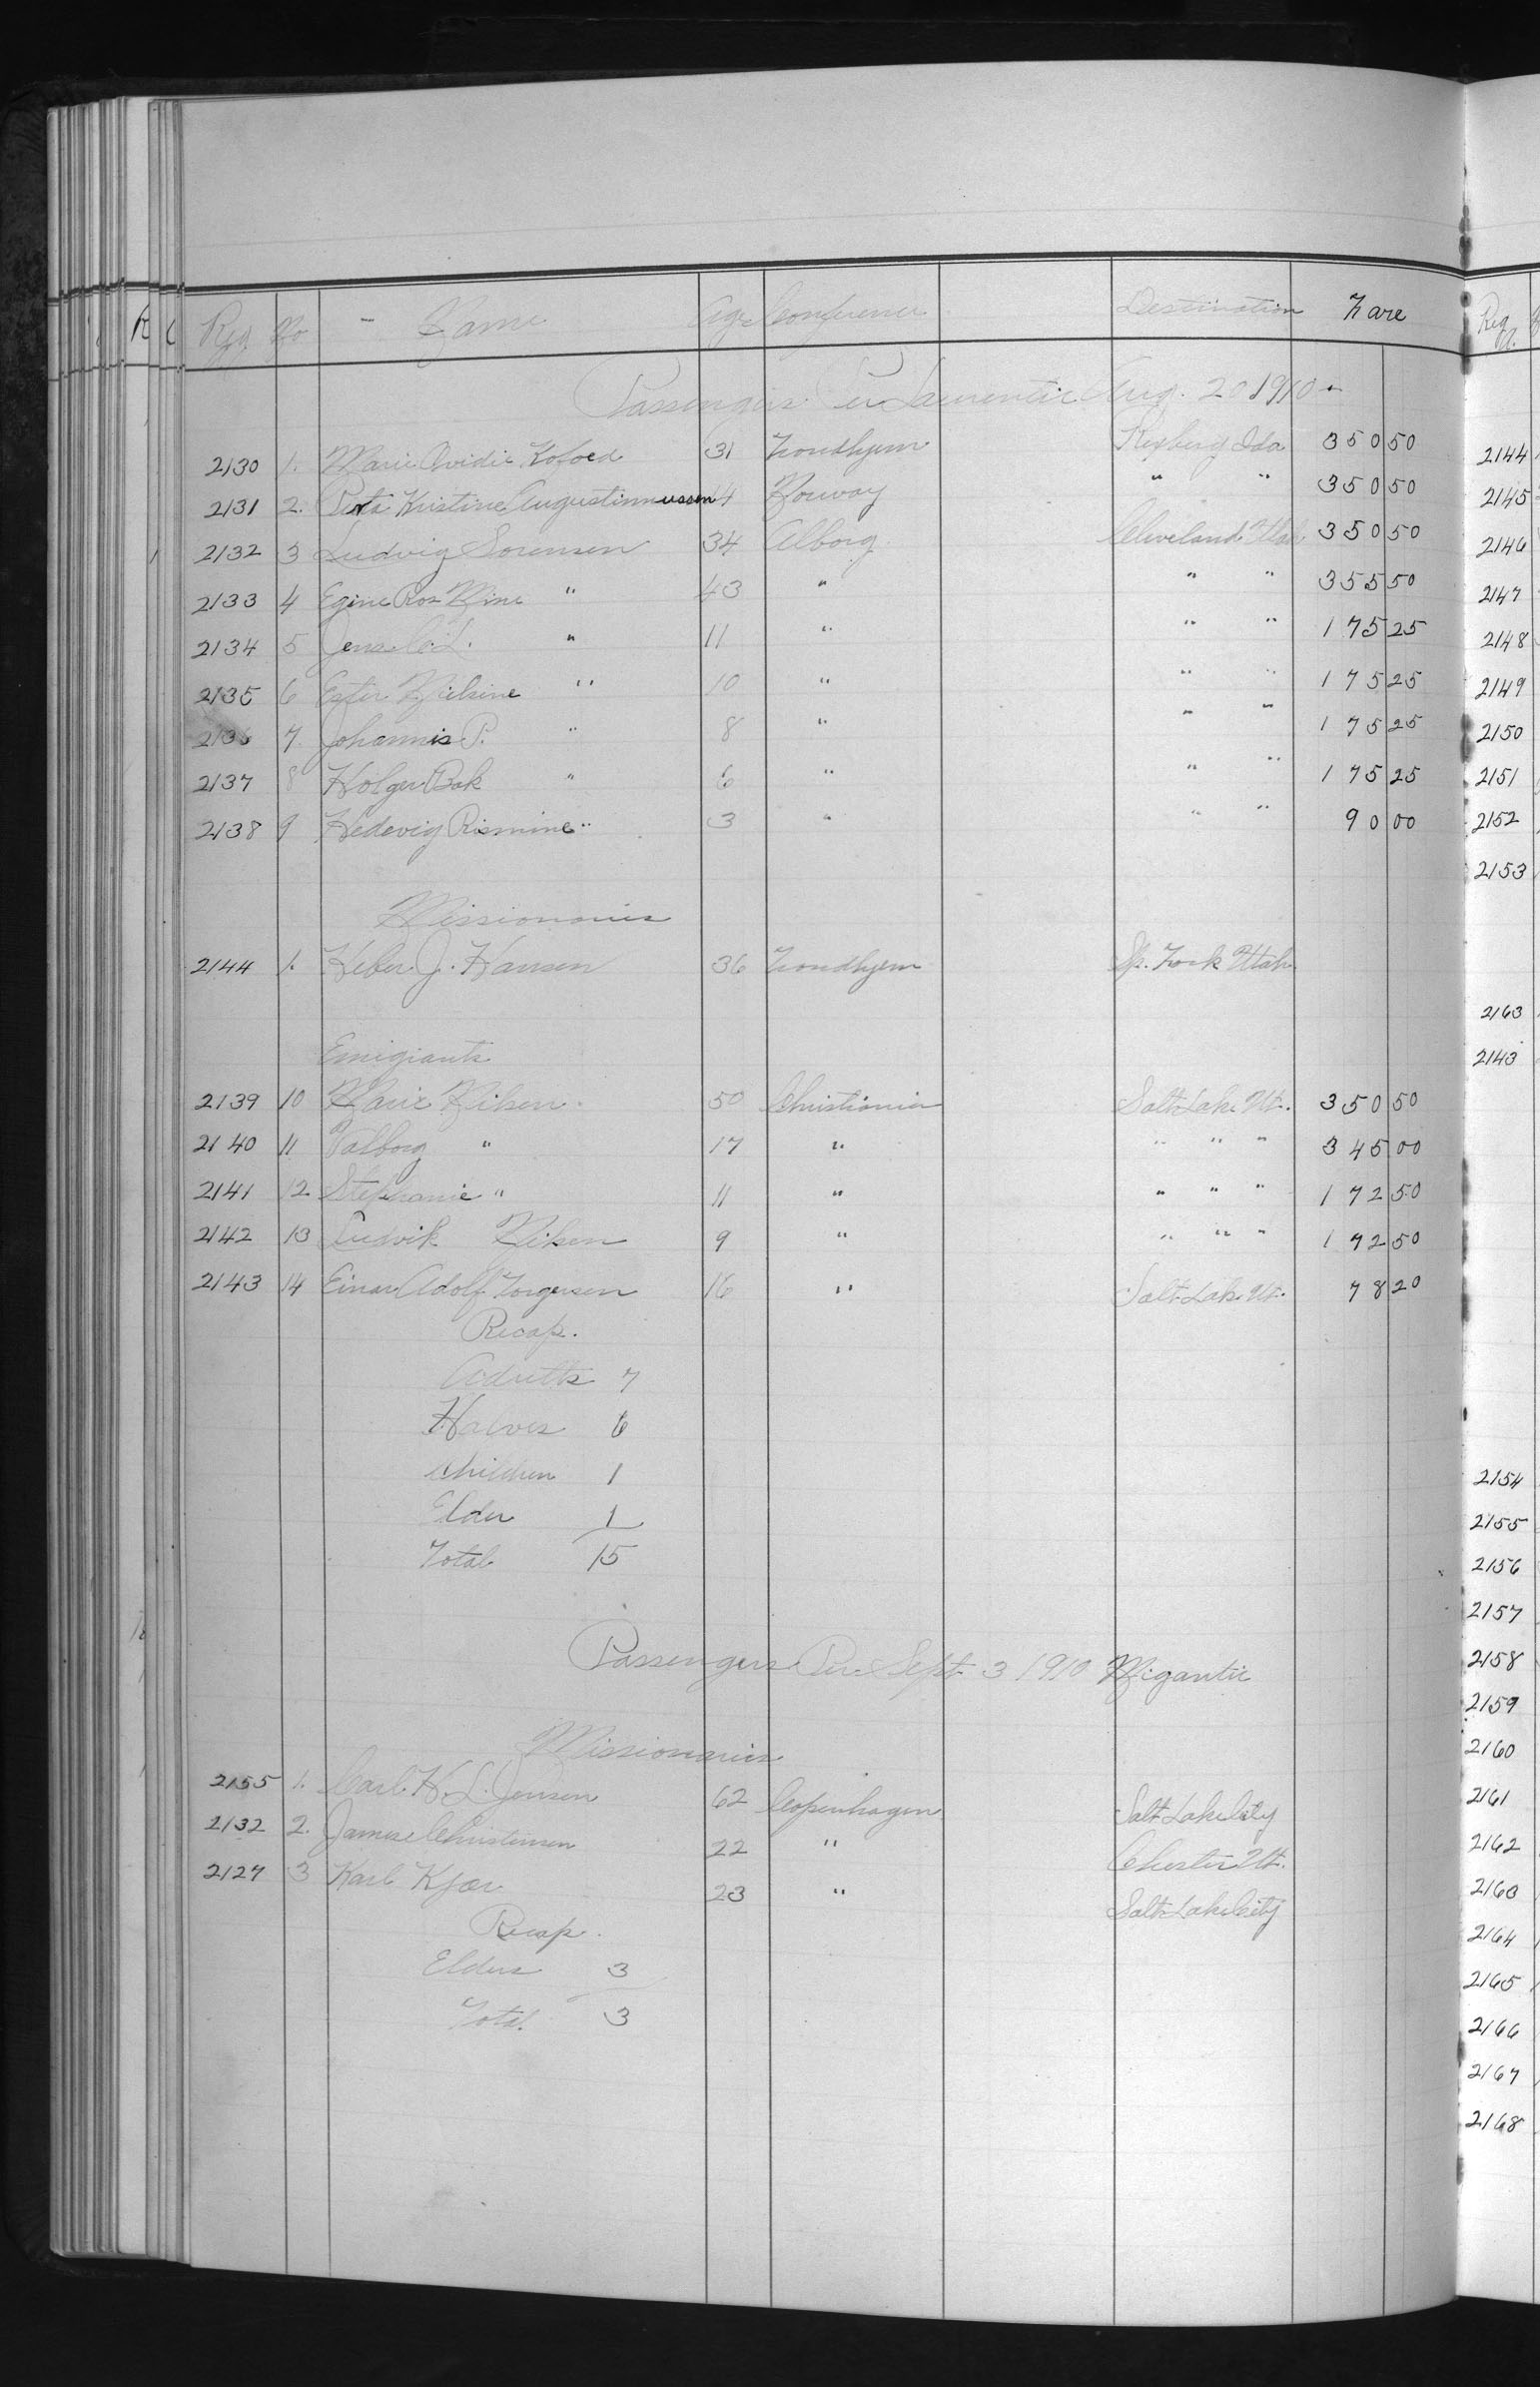 Reg. No Name Age Conference Destination Fare
Passengers Per Laurentic Aug. 20 1910
2130 1. Marie Ovidie Kofoed 31 Trondhjem Rexberg Ida 350 50
2131 2. Kristine Augustinnussen 4 Norway " " 350 50
2132 3 Ludvig Sorensen 34 Alborg Cleveland Utah 350 50
2133 4 Egine Ros Mine " 43 " " " 355 50
2134 5 Jens C. L. " 11 " " " 175 25
2135 6 Ester Nielsine " 10 " " " 175 25
2136 7. Johannis P. " 8 " " " 175 25
2137 8 Holger Bak " 6 " " " 175 25
2138 9 Hedevig Rismine " 3 " " " 90 00
Missionaries
2144 1. Heber J. Hansen 36 Trondhjem Sp. Fork Utah
Emigrants
2139 10 Marie Nilsen 50 Christiania Salt Lake Ut. 350 50
2140 11 Valborg " 17 " " " " 345 00
2141 12 Stephanie " 11 " " " " 172 50
2142 13 Ludvik Nilsen 9 " " " " 172 50
2143 14 Einar Adolf Torgersen 16 " Salt Lake Ut. 78 20
Recap.
Adults 7
Halves 6
Children 1
Elder 1
Total 15
Passengers Per Sept. 3 1910 Megantic
Missionaries
2155 1. Carl H. L. Jensen 62 Copenhagen Salt Lake City
2132 2. James Christensen 22 " Chester Ut.
2127 3 Karl Kjær 23 " Salt Lake City
Recap.
Elders 3
Total 3
Reg
2144
2145
2146
2147
2148
2149
2150
2151
2152
2153
2163
2143
2154
2155
2156
2157
2158
2159
2160
2161
2162
2163
2164
2165
2166
2167
2168